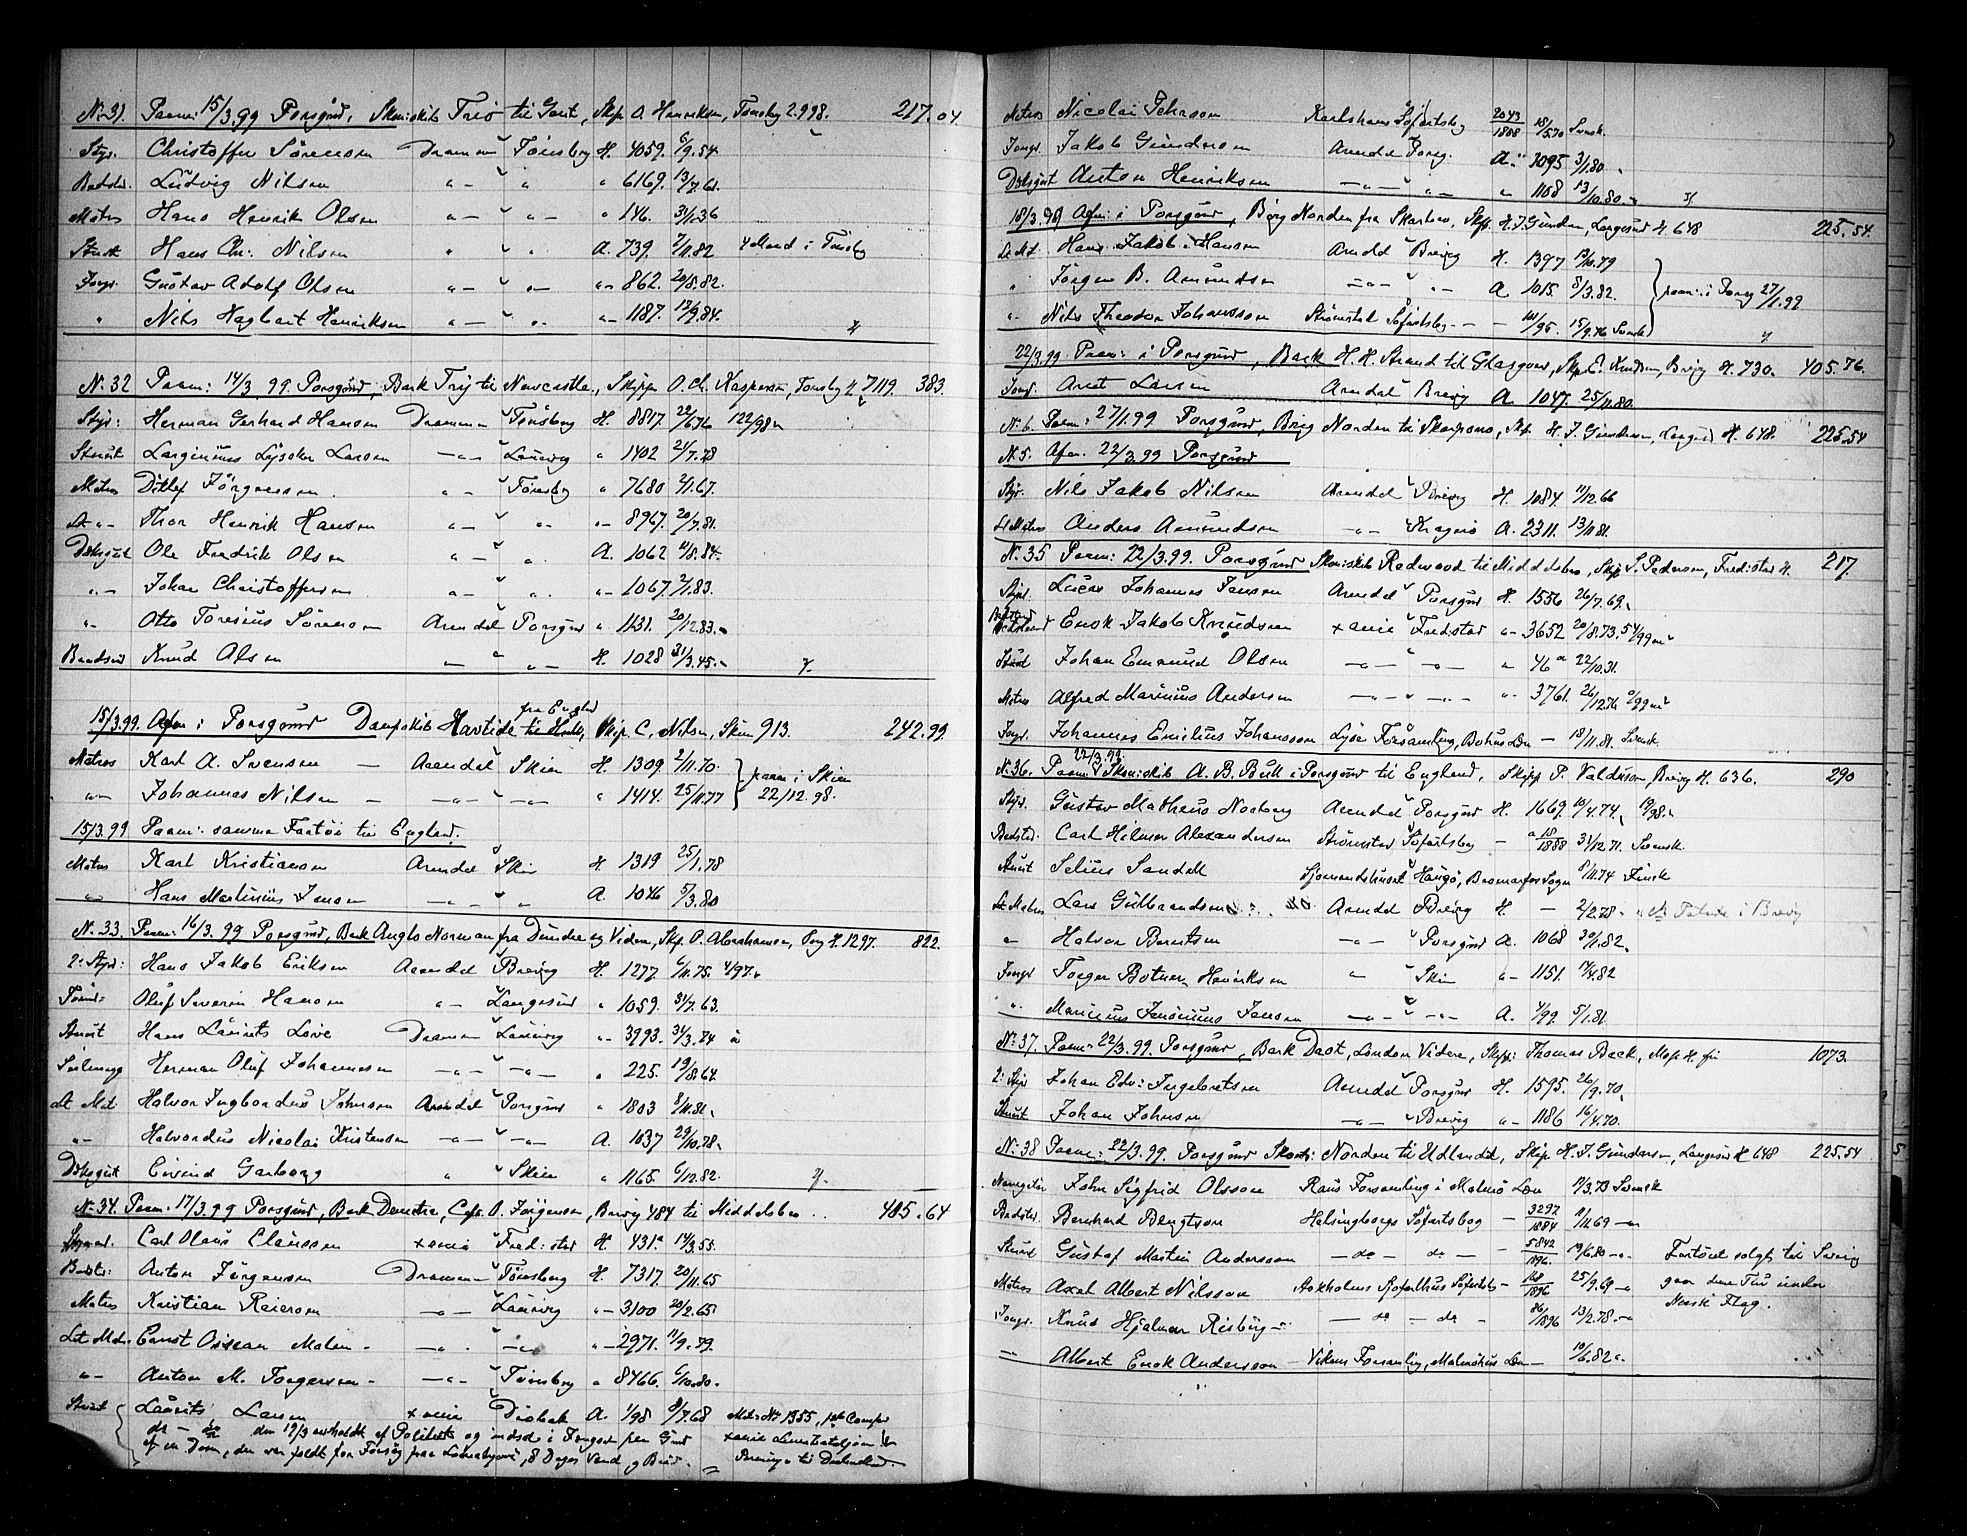 N. 31. Paam: 15/3.99 Porsgrund, Skonskib Trio til Gent, Skp. O. Henriksen, Tønsberg 2.998. 217.04
Styr. Christoffer Sörensen Drammen Tönsberg H. 4059. 6/9.54
Ludvig Nilsen " — " " 6169. 13/7.61
Matros Hans Henrik Olsen " — " — " 146. 31/1.36
Stuert Hans Chr: Nilsen " " A. 739. 7/11.82 4 Mand i Tönsberg
Jungm. Gustav Adolf Olsen " — " — " — 862. 20/8.82.
" Nils Hagbart Henriksen " — " " — 1187. 12/9.84.
N. 32 Paam: 14/3 99. Porsgrund, Bark Trig til Newcastle, Skipper O. Chr. Kaspersen, Tønsberg H 7119. 383.
Styr: Herman Gerhard Hansen Drammen Tönsberg H. 8817. 29/6.76 122/98
Stuert Larginius Lysoker Larsen — " — Laurvig " 1402 21/7.78
Matros Ditlef Jörgensen " — Tönsberg " 7680 2/1.67.
Let " — Thor Henrik Hansen " — " " — 8967. 20/7.81.
Dæksgut Ole Fredrik Olsen " — " A. 1062 11/8.84.
" — Johan Christoffersen " — " " — 1067. 2/1.83.
" — Otto Toresius Sörensen Arendal Porsgrund " 1431. 20/12.83.
Knud Olsen — " — H. 1028 31/3.45.
15/3.99. Afm: i Porsgrund Dampskib Havtide fra England til Skien, Skip. C. Nilsen, Skien 913. 242.99
Matros Karl A. Svensen — Arendal Skien H. 1309. 2/11.70. } paam i Skien
" — Johannes Nilsen — — " — — " — " 1414. 25/11.77 } 22/12.98.
15/3.99 Paam: samme Fartöi til England.
Matros Karl Kristiansen Arendal Skien H. 1319 25/1.78
" — Hans Martinius Jensen — " — " A. 1046 5/3.80
N. 33. Paam: 16/3.99 Porsgrund, Bark Anglo Norman fra Dundee og Videre, Skp. O. Abrahamsen, Porsg. H. 1297. 822.
2. Styr: Hans Jakob Eriksen Arendal Brevig H. 1277. 6/11.75. 4/97.
Tömm: Oluf Severin Hansen " — Langesund " 1059. 31/7.63.
Stuert Hans Laurits Love Drammen Laurvig " — 3993. 31/3.74
Seilmag Herman Oluf Johannesen — " — — " — " 225. 19/8.64.
Let Mat: Halvor Ingbordus Johnsen Arendal Porsgrund " 1803 8/11.81.
" — Halvordus Nicolai Kristensen — " — — " — A. 1037 29/10.78.
Dæksgut Eivind Garborg " Skien " 1165. 6/12.82.
N. 34. Paam: 17/3.99 Porsgrund, Bark Demetra, Capt. O. Jörgensen, Brevig 484 til Middelsbro 485.64
Carl Olaus Claussen Xania Fred:stad H. 431. 14/3.55.
Anton Jörgensen Drammen Tönsberg H. 7317. 20/11.65
Matros Kristian Reiersen — " — Laurvig " — 3100 20/2.65
Let Mat. Ernst Ossean Malm — " — " " — 2971. 11/9.79.
" — Anton M. Torgersen — — " — Tönsberg " 8466. 6/10.80.
Stuert Laurits Larsen Xania Dröbak A. 1/98 9/7.68
N: 
Matros Nicolai Pehrson Karlshamn Söfartsbog 2043/1888 18/5.70 Svensk.
Jungm. Jakob Gundersen Arendal Porsg. A: 3095 3/1.80
Dæksgut Anton Henriksen — " — " — " 1168 13/10.80.
18/3.99 Afm: i Porsgrund, Brig Norden fra Skarhav, Skp. H. J. Gundersen, Langesund H. 648 225.54.
Let Mt. Hans Jakob Hansen Arendal Brevig H. 1397 13/10.79
" Jörgen B. Amundsen — " — " — A. 1015. 8/3.82. } paam: i Porsg 27/1.99
" — Nils Theodor Johansson Strömstad Söfartsbog — 15/9.76 Svensk
22/3.99 Paam: i Porsgrund, Bark H. H. Strand til Glasgow, Skp. E. Knudsen, Brevig H. 730. 405.76.
Jungm. Arnt Larsen Arendal Brevig A. 1047. 25/11.80.
N. 6. Paam: 27/1.99 Porsgrund, Brig Norden til Skarhavns, Skp. H. J. Gundersen, Langesund H. 648. 225.54
N. 5. Afm. 22/3.99 Porsgrund
Styr. Nils Jakob Nilsen Arendal Brevig H. 1084. 11/12.66
Let Matros Anders Amundsen — " — Kragerö A. 2311. 13/11.81.
N. 35 Paam: 22/3.99. Porsgrund Skonskib Redwood til Middelsbro, Skip. S. Pedersen, Fredrikstad H. 217.
Styr. Lucas Johannes Jansen Arendal Porsgrund H. 1556 26/7.69.
Enok Jakob Knudsen Xania Fredstad " — 3652 20/8.73. 54/99
Stuert Johan Emanuel Olsen — " — — " — " 46 22/10.31.
Matros Alfred Marinius Andersen — " — — " — " 3761. 26/12.76
Jungm. Johannes Emilius Johansson Lyse Forsamling, Bohus Len — 18/11.81. Svensk.
N. 36. Paam: 22/3.99 Skonskib A. B. Bull i Porsgrund til England, Skipp. P. Valdusen, Brevig H. 636. 290
Styr. Gustav Matheus Norberg Arendal Porsgrund H. 1669. 10/4.74. 19/98.
Bedstd. Carl Hilmer Alexandersen Strömstad Söfartsbog — 18/1888 31/12.71. Svensk.
Stuert Selius Sandell Sjomandshuset Hangö, Bromarfs Sogn 8/11.74 Finsk
Let Matros Lars Gulbrandsen Arendal Brevig H. — 2/2.78
" Halvor Berntsen — " — Porsgrund A. 1068 30/11.82.
Jungm. Torger Botner Henriksen " Skien " — 1151. 17/4.82
" Marinius Jensinius Jansen — " — — " — A. 4/99. 5/1.81
N. 37. Paam: 22/3.99. Porsgrund, Bark Daot, London Videre, Skpp: Thomas Back, Moss H. fri 1073.
2. Styr Johan Edv: Ingebretsen Arendal Porsgrund H. 1595. 26/9.70.
Stuert Johan Johnsen — " — Brevig " — 1186 16/4.70.
N. 38 Paam: 22/3.99. Porsgrund Skonr: Norden til Udlandet, Skip. H. J. Gundersen, Langesund H 648 225.54
Navigatör John Sigfrid Olsson Raus Forsamling i Malmö Len 11/3.73 Svensk
Bedstd. Bernhard Bengtson Helsingborgs Söfartsbog — 3297/1884 11/11.69 —
Stuert Gustaf Martin Andersson — do — do — 5842/1896. 19/6.80 — Fartöiet solgt til Sverig
Matros Axel Albert Nilsson Stokholms Sjofarthus Söfartsb. — 168/1896 25/9.69 — gaar denne Tur under
Jungm. Knud Hjalmar Risberg — — do — do — 86/1896 13/2.78. — Norsk Flag.
— Albert Enok Andersson — Vikens Forsamling, Malmöhus Len — 10/6.82.